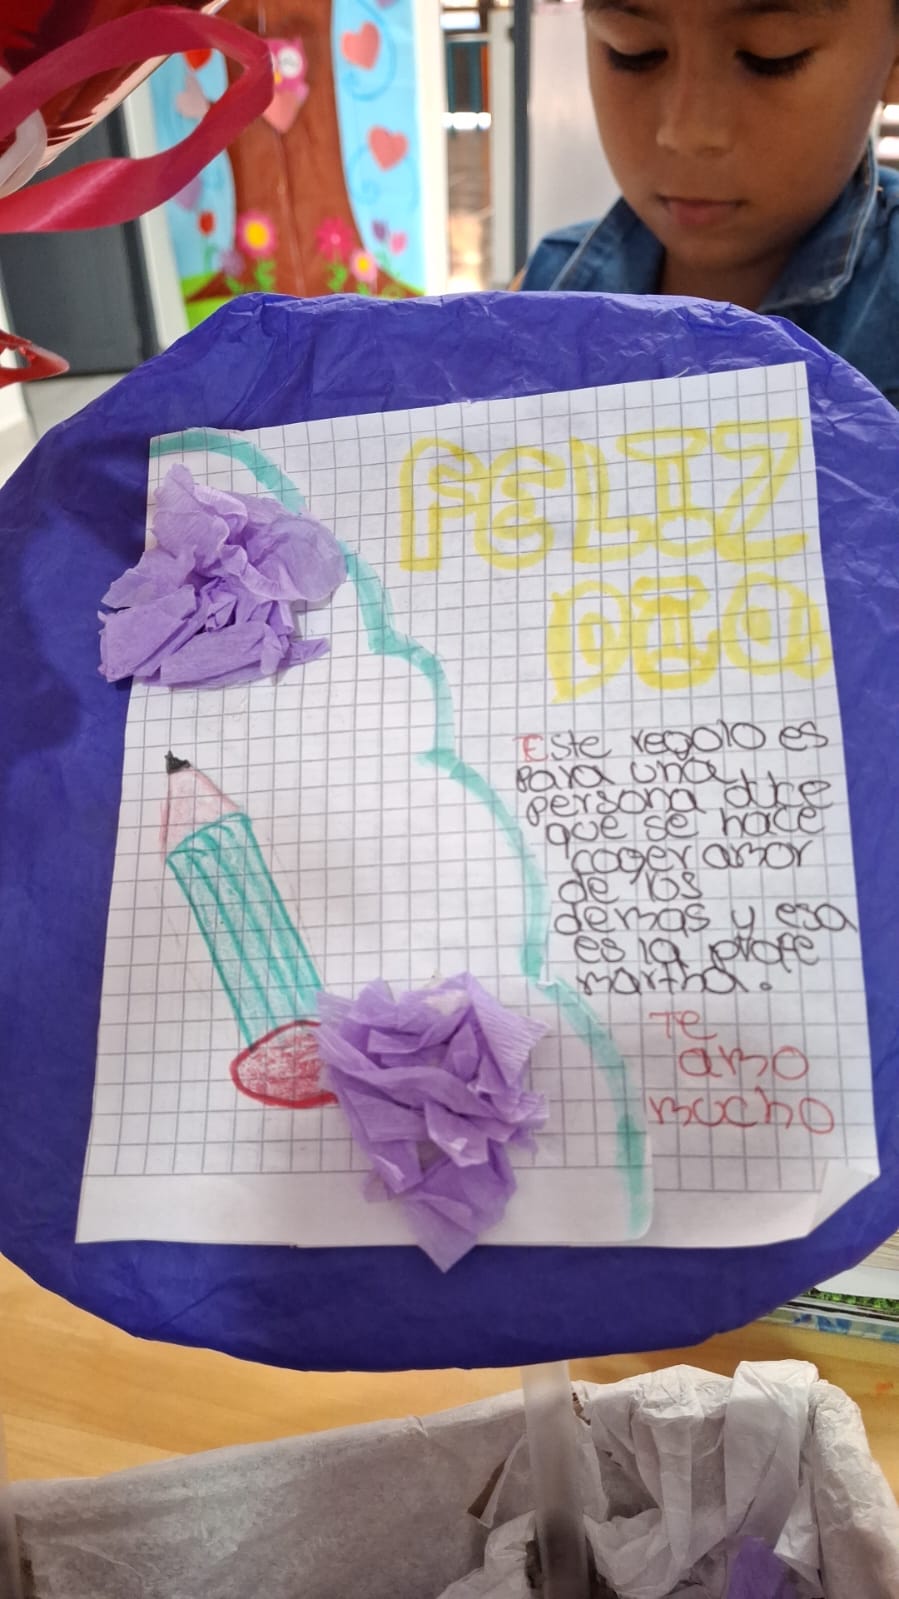 FELIZ
DIA
Este regalo es
para una
persona dulce
que se hace
coger amor
de los
demas y esa
es la profe
martha.
Te
amo
mucho